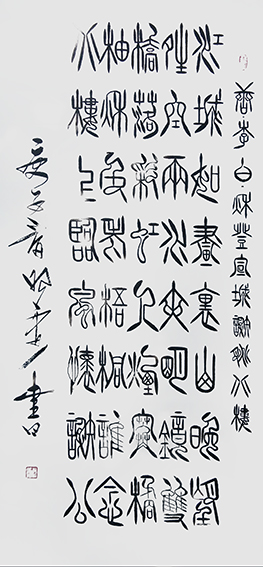 唐李白秋登宣城謝朓北樓
江城如畫裏山晚望
晴空兩水夾明鏡雙
橋落彩虹人煙寒橘
柚秋色老梧桐誰念
北樓上臨風懷謝公
書